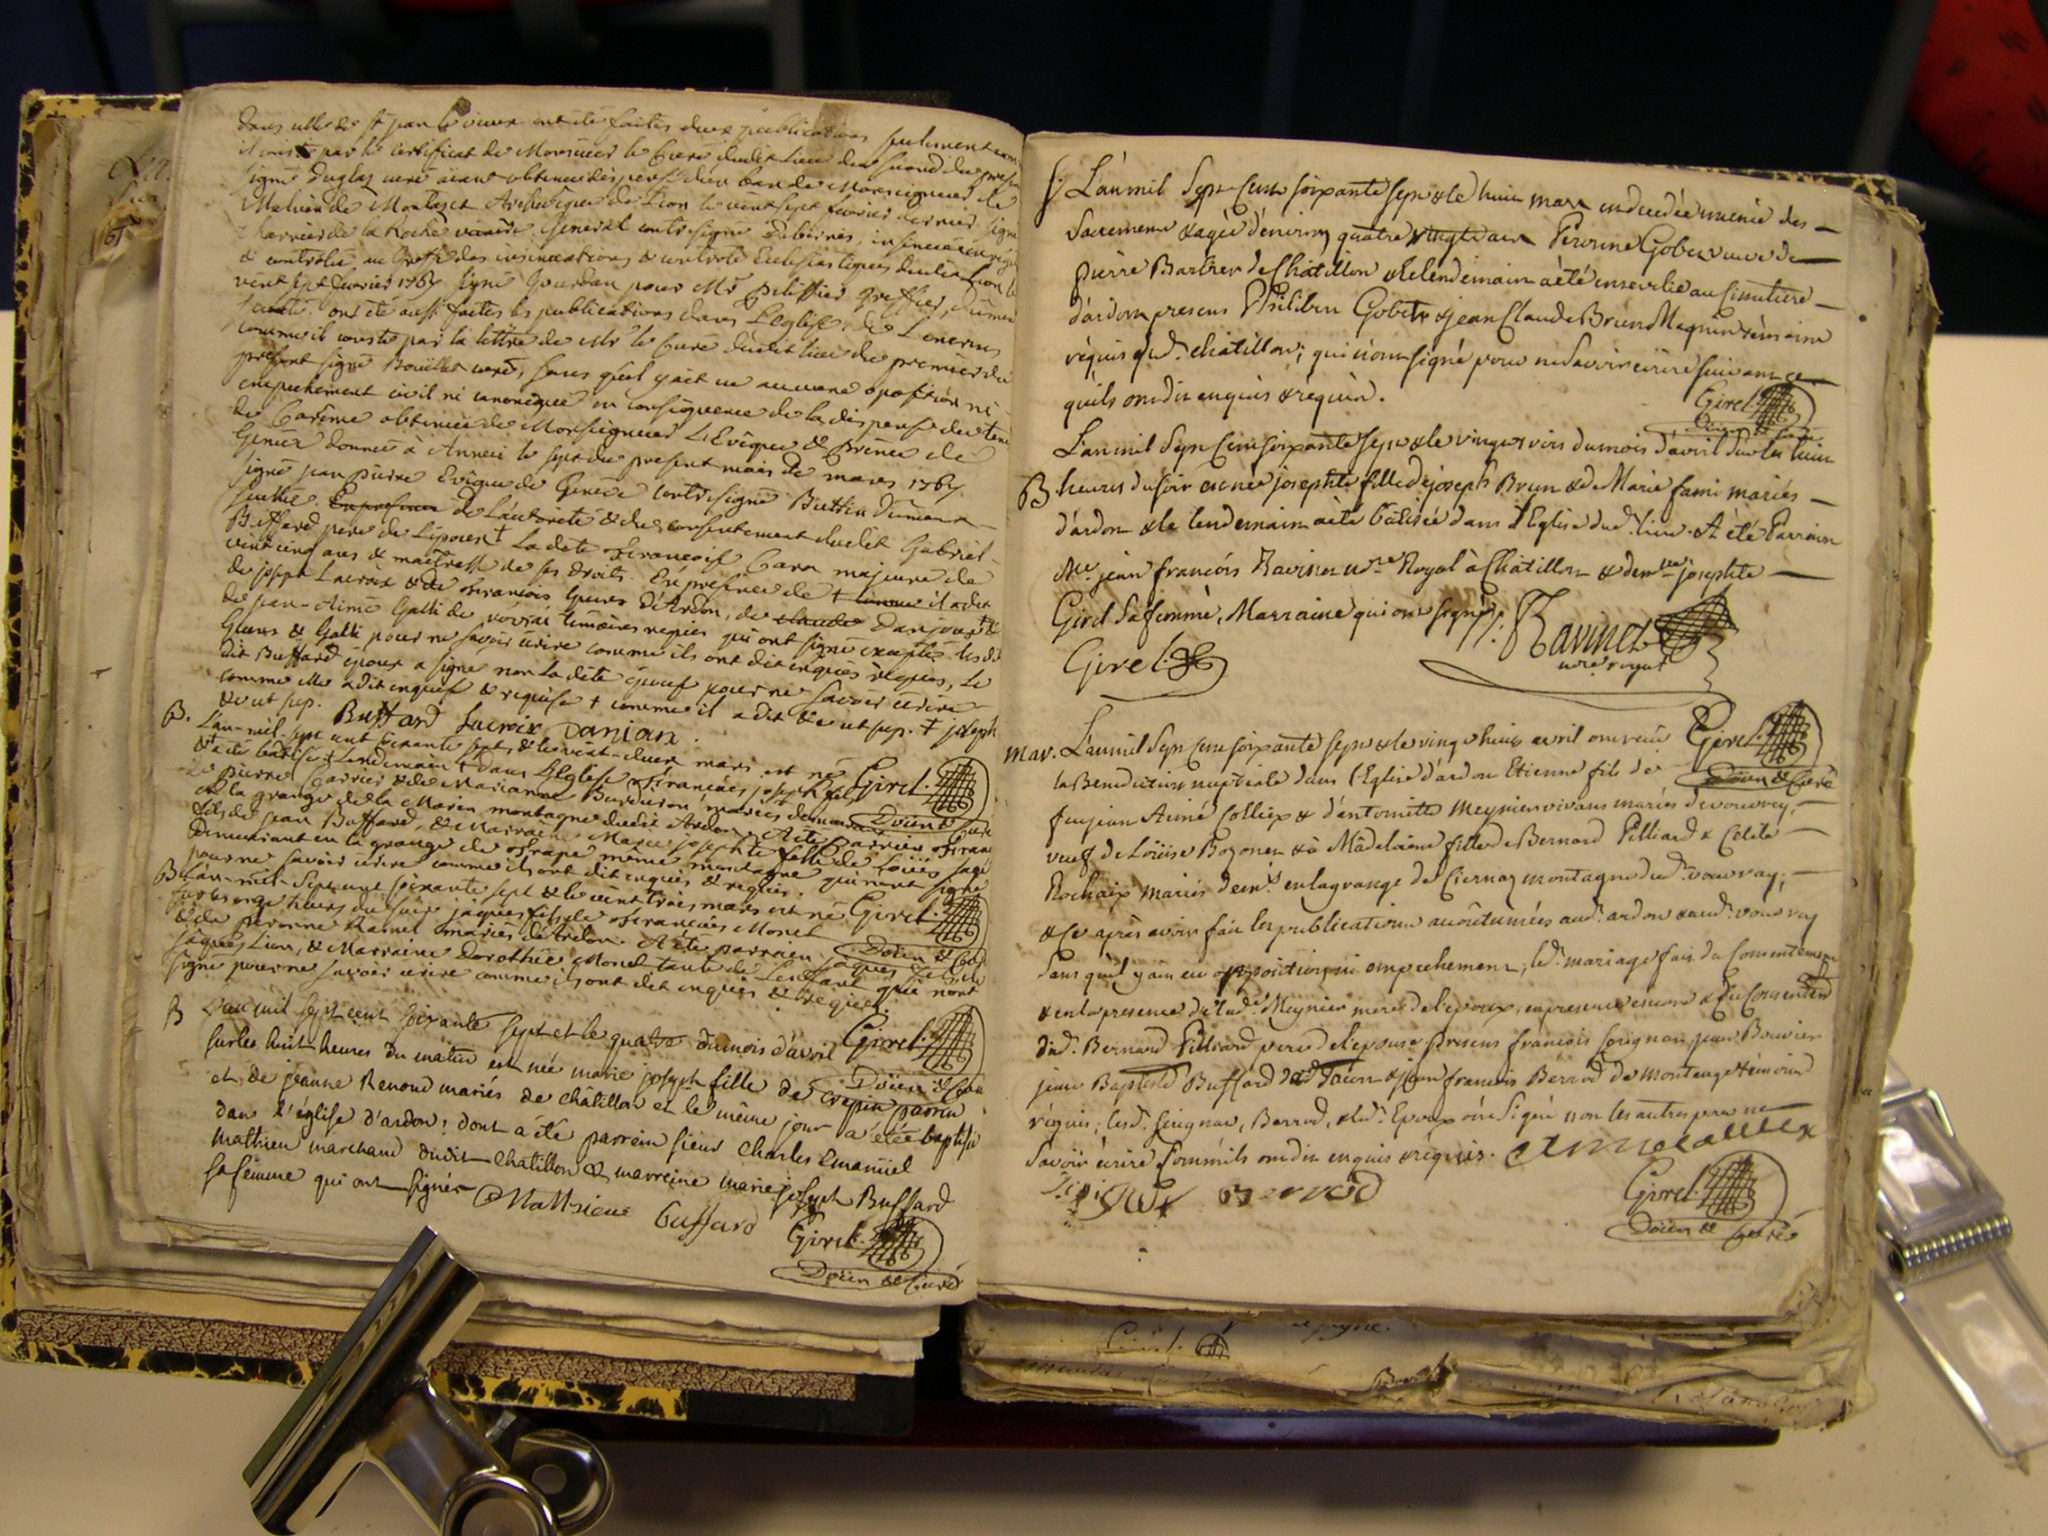 dans celle de st jean le vieux ont été faites deux publications seulement comme
il conste par le certificat de Monsieur le Curé dudit lieu du second du present
signé curé aiant obtenu dispense d'un ban de Monseigneur de
Malvin de Montazet Archevêque de Lion le vent sept fevrier dernier signé
de la Roche vicaire General contresigné
& controllé au Greffe des insinuations & controle Ecclesiastiques dudit Lion le
vent sept fevrier 1767 signé Jourdan pour Mr Greffier,
ont été aussi faites les publications dans L'eglise de
comme il conste par la lettre de Mr le Curé dudit lieu du premier du
present signé Boüillet curé, sans qu'il y ait eu aucune oposition ni
empechement civil ni canonique en consequence de la dispense du tems
de Carême obtenüe de Monseigneur L'Evêque & Prince de
Geneve donnée à Anneci le sept du present mois de mars 1767
signé jean pierre Evêque de Geneve contresigné
de L'autorité & du consentement dudit Gabriel
Buffard pere de L'epoux + La dite françoise majeure de
vent cinq ans & maîtresse de ses droits. En presence de
de joseph Lacroix & de françois d'Ardon, de
de jean-Aimé de témoins requis qui ont signé excepté les dits
& pour ne savoir écrire comme ils ont dit enquis & requis, le
dit Buffard époux a signé non la dite épouse pour ne savoir écrire
comme elle a dit enquise & requise + comme il a dit & ut sup. + joseph
& ut sup. Buffard Lacroix
B. L'an mil sept cent soixante sept & le vent-deux mars est né Girel.
& a été batisé Lendemain dans L'Eglise françois joseph fils
de pierre & de Marianne mariés demeurants Doïen & Curé
en la grange de la montagne dudit Ardon. A été Parrien
fils de jean Buffard, & Marraine Marie josephte fille de
demeurant en la grange de même montagne qui n'ont signé
pour ne savoir écrire comme ils ont dit enquis & requis.
B L'an-mil-Sept cent soixante sept & le vent trois mars est né Girel.
sur les onze heures du soir jâques fils de françois Monet
& de peronne mariés d'Ardon. A été parrien jâques Doïen & Curé
& Marraine Dorothée Monet tante de L'enfant qui n'ont
signé pour ne savoir écrire comme ils ont dit enquis & requis.
B L'an mil sept cent soixante sept et le quatre du mois d'avril Girel.
sur les huit heures du matin est née marie joseph fille de crepin Doïen & Curé
et de jeanne Renoud mariés de châtillon et le même jour a été baptisé
dans l'église d'ardon; dont a été parrein sieur charles Emanüel
mathieu marchand dudit chatillon & marreine marie joseph Buffard
sa femme qui ont signés Matthieu Buffard
Girel.
Doïen & Curé
S: L'an mil Sept Cent soixante sept & le huit mars est decedée munie des
Sacremens & agée d'environ quatre vingt ans Perrine Gobet veuve de
pierre Barbier de Châtillon & le lendemain a été ensevelie au cimetiere
d'ardon presens Philibert Gobet & jean Claude Brun Magnin témoins
requis dud. chatillon; qui n'ont signé pour ne savoir écrire suivant ce
qu'ils ont dit enquis & requis. Girel.
Doïen & Curé
L'an mil Sept Cent soixante sept & le vingt trois du mois d'avril sur les huit
B heures du soir est née josephte fille de joseph Brun & de Marie fami mariés
d'ardon & le lendemain a été batisée dans l'Eglise dud. lieu. A été Parrain
Me. jean françois Ravinet nre. Royal à Châtillon & demlle josephte
Girel sa femme, Marraine qui ont signé J: f: Ravinet
Girel. nre royal
mar. L'an mil sept cent soixante sept & le vingt huit avril ont reçu Girel.
la Benediction nuptiale dans l'Eglise d'ardon Etienne fils de Doïen & Curé
feu jean Aimé Colliex & d'antoinette Meynier vivans mariés de vouvray,
veuf de Loüise Bozonet & à Madelaine fille de Bernard Pilliard & Colete
Rochaix mariés demts. en la grange de Ciernaz montagne dud. vouvray;
& Ce après avoir fait les publications accoûtumées aud. ardon & aud. vouvray
sans qu'il y ait eu opposition ni empechement, led. mariage fait du consentement
& en la presence de lad. Meynier mere de l'epoux, en presence encore & du consentement
dud. Bernard Pilliard pere de l'epouse presens françois Seignat, jean Bouvier
jean Baptiste Buffard dud. & jean françois Berrod de montange témoins
requis, lesd. Seignat, Berrod, & led. Epoux ont signé non les autres pour ne
savoir écrire comm'ils ont dit enquis & requis.
Berrod Girel.
Doïen & Curé